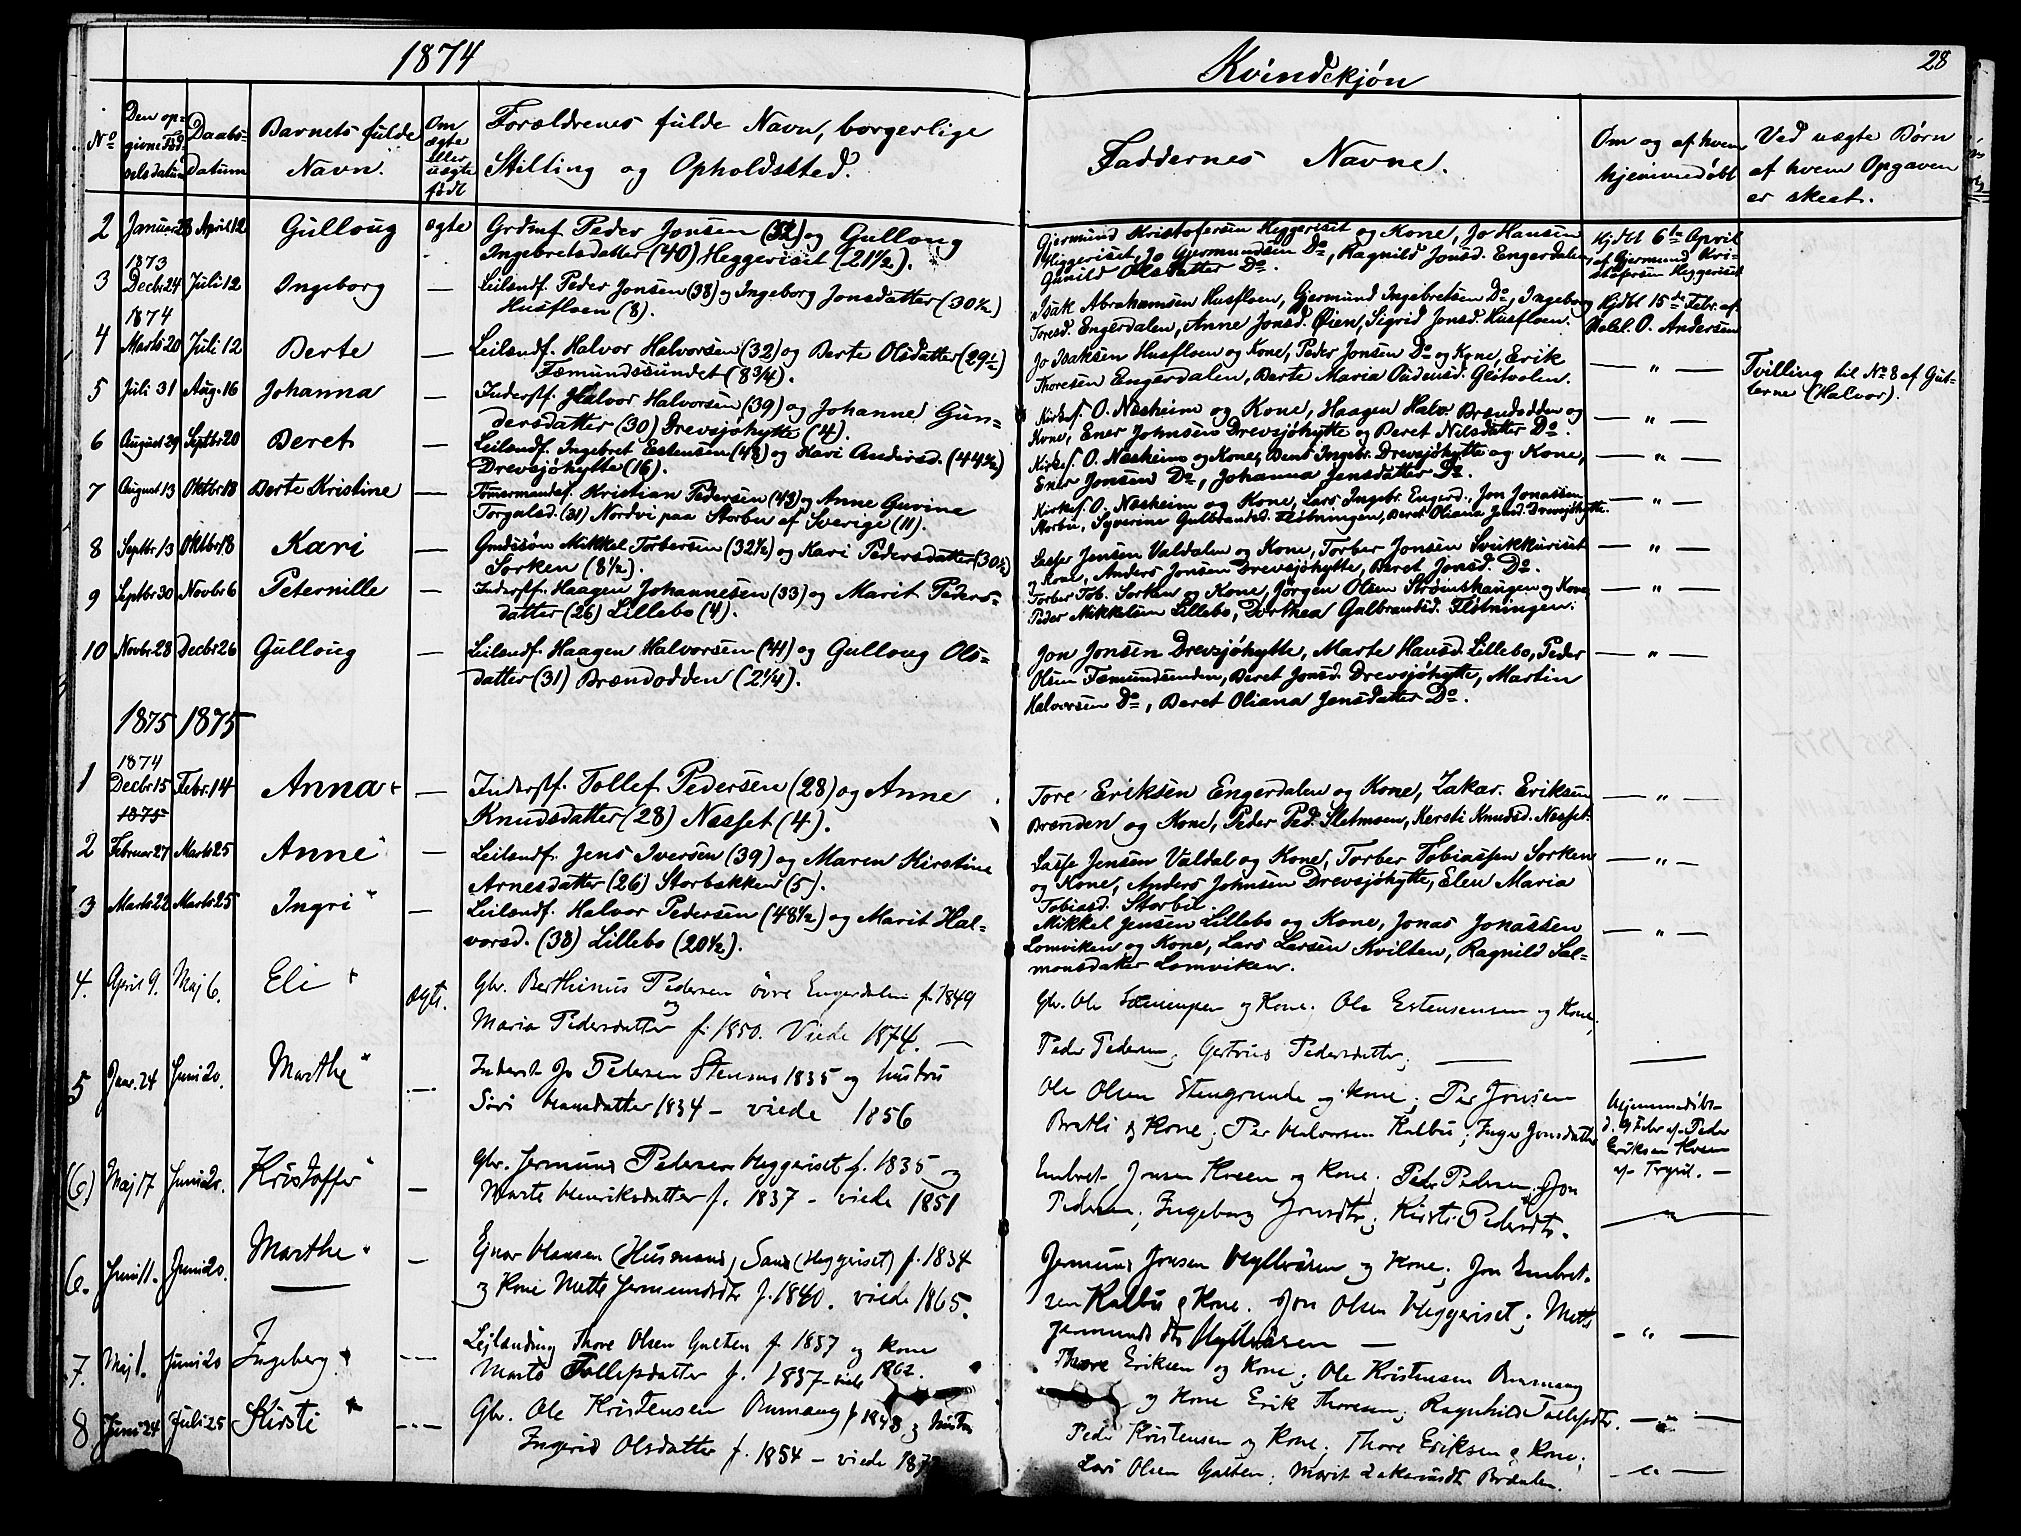 1874
Kvindekjøn
28
No
Den opgivne Fødselsdatum
Daabs-Datum
Barnets fulde Navn.
Om ægte eller uægte født
Forældrenes fulde Navn, borgerlige Stilling og Opholdssted.
Faddernes Navne.
Om og af hvem hjemmedøbt
Ved uægte Børn af hvem Opgaven er skeet.
2 Januar 23 April 12 Gulloug ægte Grdmf Peder Jonsen (32) og Gulloug
Ingebretsdatter (40) Heggeriset (21½).
Gjermund Kristofersen Heggeriset og Kone, Jo Hansen
Heggeriset, Jo Gjermundsen Do, Ragnild Jonsd. Engerdalen
Gunild Olsdatter Do.
Hjdbt 6te April
af Gjermund Kri-
stofersen Heggeriset
1873
3 Decbr 24 Juli 12 Ingeborg — Leilændf. Peder Jonsen (38) og Ingeborg Jonsdatter (30½)
Husfloen (8).
Isak Abrahamsen Husfloen, Gjermund Ingebretsen Do, Ingeborg
Toresd. Engerdalen, Anne Jonsd. Øien, Sigrid Jonsd. Husfloen.
Hjdbt 15de Febr. af
O. Andersen
1874
4 Marts 20 Juli 12 Berte — Leilændf. Halvor Halvorsen (32) og Berte Olsdatter (29½)
Fæmundssundet (8¾).
Jo Isaksen Husfloen og Kone, Peder Jonsen Do og Kone, Erik
Thoresen Engerdalen, Berte Maria Oudensd. Gestvolen.
— " —
Tvilling til No 8 af Gut-
terne (Halvor).
5 Juli 31 Aug. 16 Johanna — Inderstf. Halvor Halvorsen (39) og Johanne Gun-
dersdatter (30) Drevsjøhytte (4).
Kirkes. O. Næsheim og Kone, Haagen Halv. Brændodden og
Kone, Ener Johnsen Drevsjøhytte og Beret Nilsdatter Do.
— " —
6 August 29 Septbr 20 Beret — Leilændf. Ingebret Estensen (42) og Kari Andersd. (44½)
Drevsjøhytte (16).
Kirkes. O. Næsheim og Kone, Bent Ingebr. Drevsjøhytte og Kone,
Ener Jonsen Do, Johanna Jensdatter Do.
— " —
7 August 13 Oktbr 18 Berte Kristine — Tømermandsf. Kristian Pedersen (43) og Anne Guvine
Torgalsd. (31) Nordvi paa Storbu af Sverige (11).
Kirkes. O. Næsheim og Kone, Lars Ingebr. Engerd., Jon Jonassen
Morbu, Syverine Gulbrandsd. Fløtningen, Beret Oliana Jensd. Drevsjøhytte.
— " —
8 Septbr 13 Oktbr 18 Kari — Grdssøn Mikkel Torbersen (32½) og Kari Pedersdatter (30½)
Sorken (8½).
Lasse Jensen Valdalen og Kone, Torber Jonsen Svukkuriset
og Kone, Anders Jonsen Drevsjøhytte, Beret Jonsd. Do.
— " —
9 Septbr 30 Novbr 6 Peternille — Inderstf. Haagen Johannesen (33) og Marit Peders-
datter (26) Lillebo (4).
Torber Tob. Sorken og Kone, Jørgen Olsen Strømshaugen og Kone,
Peder Mikkelsen Lillebo, Dorthea Gulbrandsd. Fløtningen.
— " —
10 Novbr 28 Decbr 26 Gulloug — Leilændf. Haagen Halvorsen (41) og Gulloug Ols-
datter (31) Brændodden (21/4).
Jon Jonsen Drevsjøhytte, Marte Hansd. Lillebo, Peder
Olsen Fæmundsenden, Beret Jonsd. Drevsjøhytte, Martin
Halvorsen Do, Beret Oliana Jensdatter Do.
— " —
1875 1875
1874
1 Decbr 15 Febr. 14 Anna — Inderstf. Tollef Pedersen (28) og Anne
Knudsdatter (28) Næsset (4).
Tore Eriksen Engerdalen og Kone, Zakar. Eriksen
Brænden og Kone, Peder Ped. Sletmoen, Kersti Knudsd. Næsset.
— " —
1875
2 Februar 27 Marts 25 Anne — Leilændf. Jens Iversen (39) og Maren Kirstine
Arnesdatter (26) Storbækken (5).
Lasse Jensen Valdal og Kone, Torber Tobiassen Sorken
og Kone, Anders Johnsen Drevsjøhytte, Elen Maria
Tobiasd. Storbu.
— " —
3 Marts 22 Marts 25 Ingri — Leilændf. Halvor Pedersen (48½) og Marit Hal-
vorsd. (38) Lillebo (20½).
Mikkel Jensen Lillebo og Kone, Jonas Jonassen
Lomviken og Kone, Lars Larsen Kvilten, Ragnild Sal-
monsdatter Lomviken.
— " —
4. April 9. Maj 6. Eli ægte. Gbr. Berthinus Pedersen øvre Engerdalen f. 1849
og
Maria Pedersdatter f. 1850. Viede 1874. —
Gbr. Ole og Kone. Ole Estensensen og Kone,
Peder Pedersen; Gertrud Pedersdatter; —
5 Janr. 24 Juni 20. Marthe — Inderst Jo Pedersen 1835 og hustru
Siri Hansdatter 1834 — viede 1856
Ole Olsen Stengrunde og Kone; Per Jonsen
Bratli og Kone; Per Halvorsen Kalbu; Inger Jonsdatter
Hjemmedøbt
d. 9 Febr af Peder
Eriksen Kroen
af Trysil. —
(6) Maj 17 Juni 20. Kristoffer — Gbr. Jermund Pedersen Heggeriset f. 1835 og
Marte Henriksdatter f. 1837 — viede 1851
Embret Jonsen Kroen og Kone; Peder Pedersen; Jon
Pedersen; Ingeborg Jonsdtr; Kirsti Pedersdtr.
— " —
6. Juni 11. Juni 20. Marthe — Ejnar Hansen (Husmand) Sand (Heggeriset) f. 1834
og Kone Mette Jermundsdtr f. 1840. viede 1865.
Jermund Jonsen Hylleråsen og Kone; Jon Embret-
sen Kalbu og Kone. Jon Olsen Heggeriset; Mette
Jermundsdtr Hylleråsen —
— " —
7. Maj 1. Juni 20 Ingeborg — Lejlænding Thore Olsen Galten f. 1837 og Kone
Marte Tollefsdatter f. 1837 — viede 1862.
Thore Eriksen og Kone; Ole Kristensen Rumaug
og Kone Erik Thoresen; Ragnhild Tollefsdtr.
— " —
8 Juni 24 Juli 25 Kirsti — Gbr. Ole Kristensen Rumaug f 1848 og hustru
Ingrid Olsdatter f. 1854 — viede 187
Peder Kristensen og Kone; Thore Eriksen og Kone;
Lars Olsen Galten; Marit Brødalen.
— " —